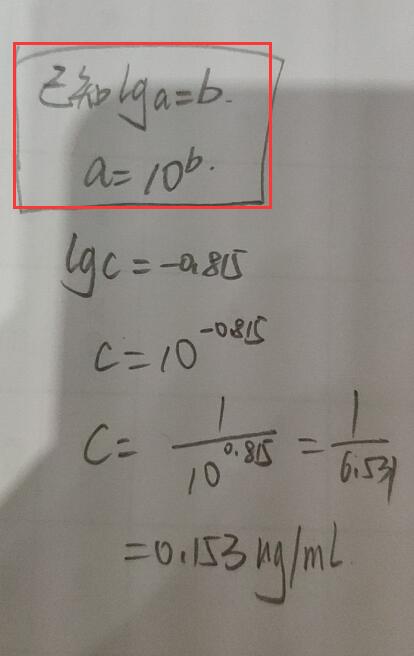 已知lga=b.
a=10^b.
lgc=-0.815
c=10^-0.815
C=1/10^0.815=1/6.531
=0.153ng/mL.